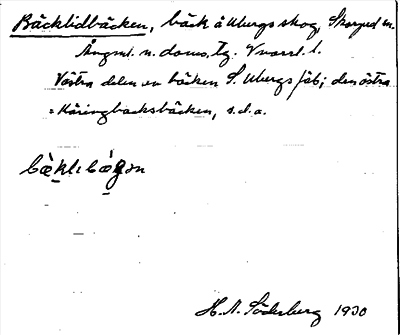 Bäcklidbäcken, bäck å Ubergs skog, Skorped sn.
Ångml. n. doms. tg. Vnorrl. l.
Västra delen av bäcken S. Ubergs fäb; den östra
= Käringbacksbäcken, s.d.o.
bæ̀klibæ̀gən
H. N. Söderberg 1930